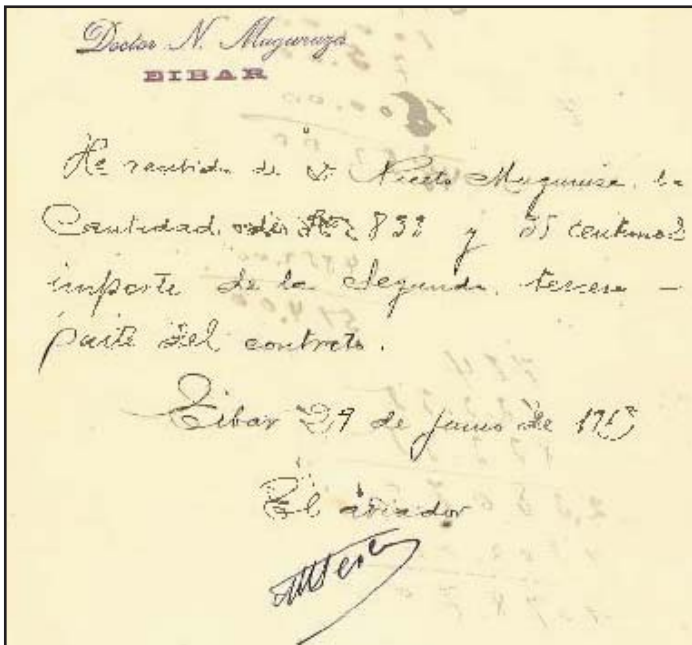 Doctor N. Muguruza
EIBAR
He recibido de D. Niceto Muguruza la
Cantidad de 833 y 35 centimos
importe de la segunda tercera —
parte del contrato.
Eibar 29 de Junio de 1913
El aviador